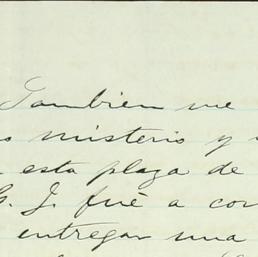 También me
misterio y
esta plaza de
G. J. fué a con
entregar una